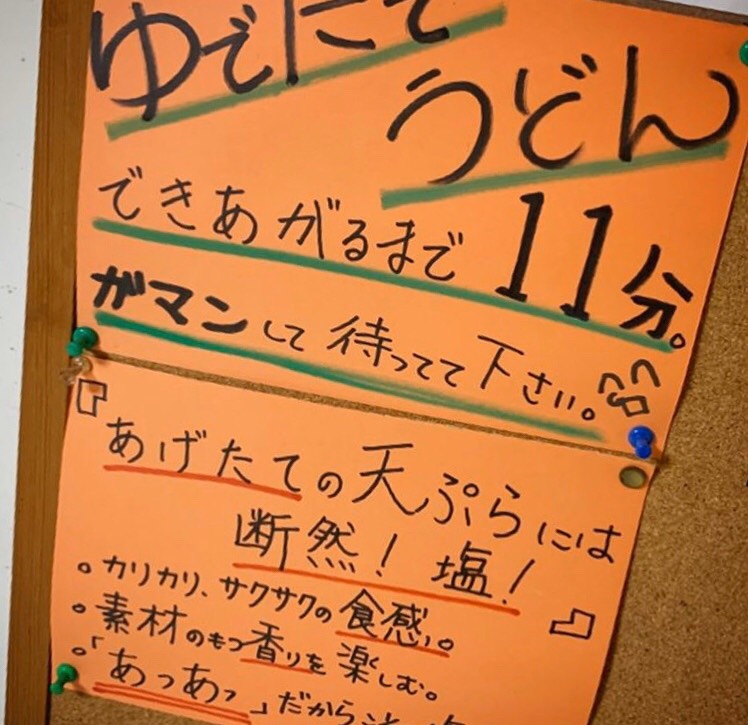 ゆでたて
うどん
できあがるまで11分。
ガマンして待ってて下さい。
『あげたての天ぷらには
断然！塩！』
。カリカリ、サクサクの食感。
。素材のもつ香りを楽しむ。
。「あつあつ」だからこそ